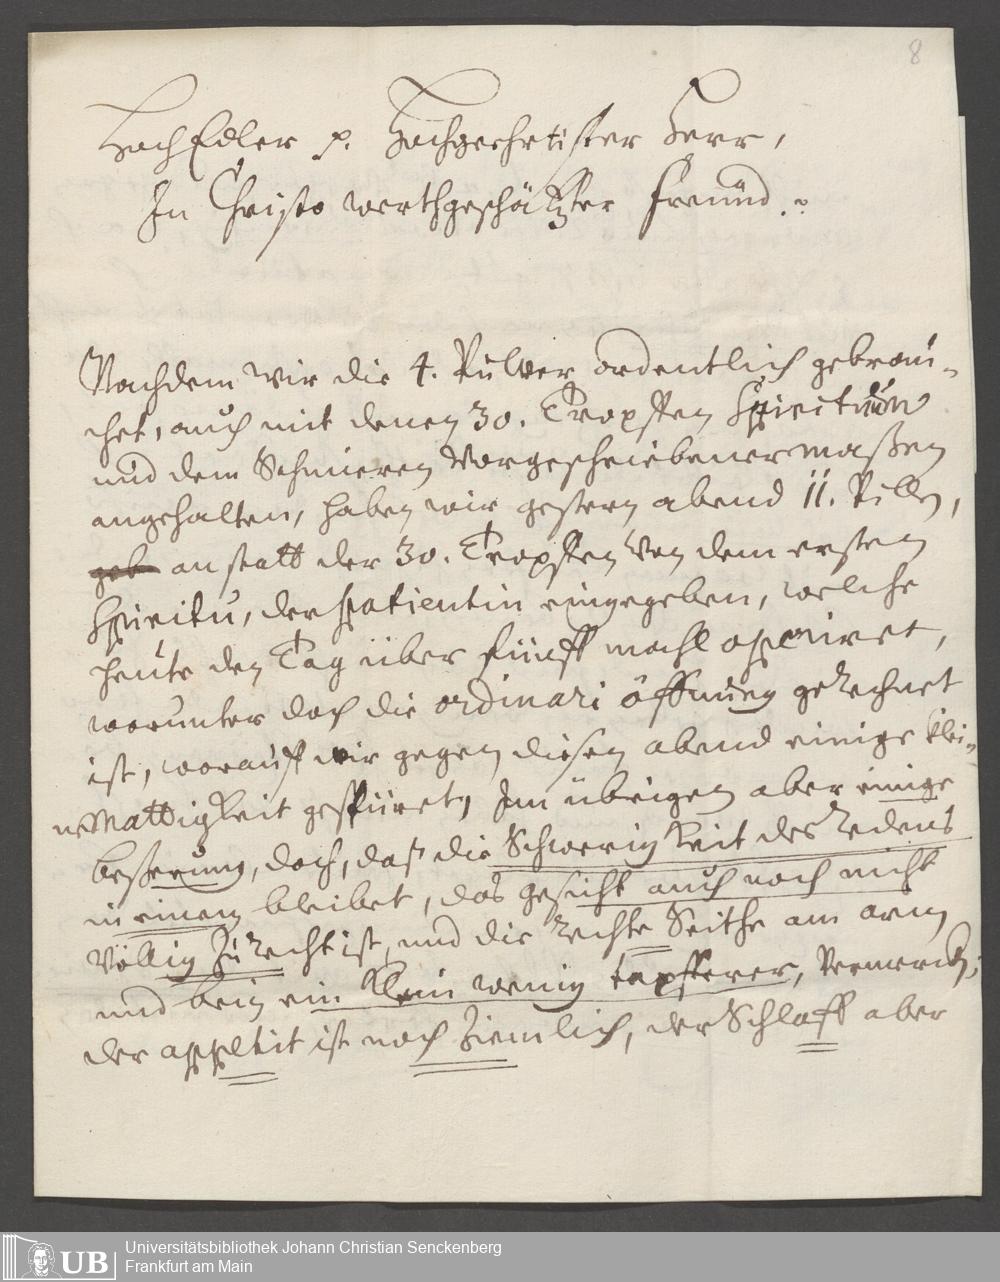 8
HochEdler p. Hochgeehrtister Herr,
In Christo werthgeschätzter Freünd.
Nachdem wir die 4. Pulver ordentlich gebrau-
chet, auch mit denen 30. Tropffen Spirituum
und dem Schmieren vorgeschriebener maßen
angehalten, haben wir gestern abend 11. Pillen,
anstatt der 30. Tropffen von dem ersten
Spiritu, der patientin eingegeben, welche
heüte den Tag über fünff mahl operiret,
worunter doch die ordinari öffnung gerechnet
ist, worauff wir gegen diesen abend einige klei-
ne Mattigkeit gespüret, Im übrigen aber einige
beßerung, doch, daß die Schwerigkeit des redens
in einem bleibet, das gesicht auch noch nicht
völlig zu recht ist, und die rechte Seithe am arm
und bein ein klein wenig tapfferer, vermerckt;
der appetit ist noch ziemlich, der Schlaff aber
UB
Universitätsbibliothek Johann Christian Senckenberg
Frankfurt am Main